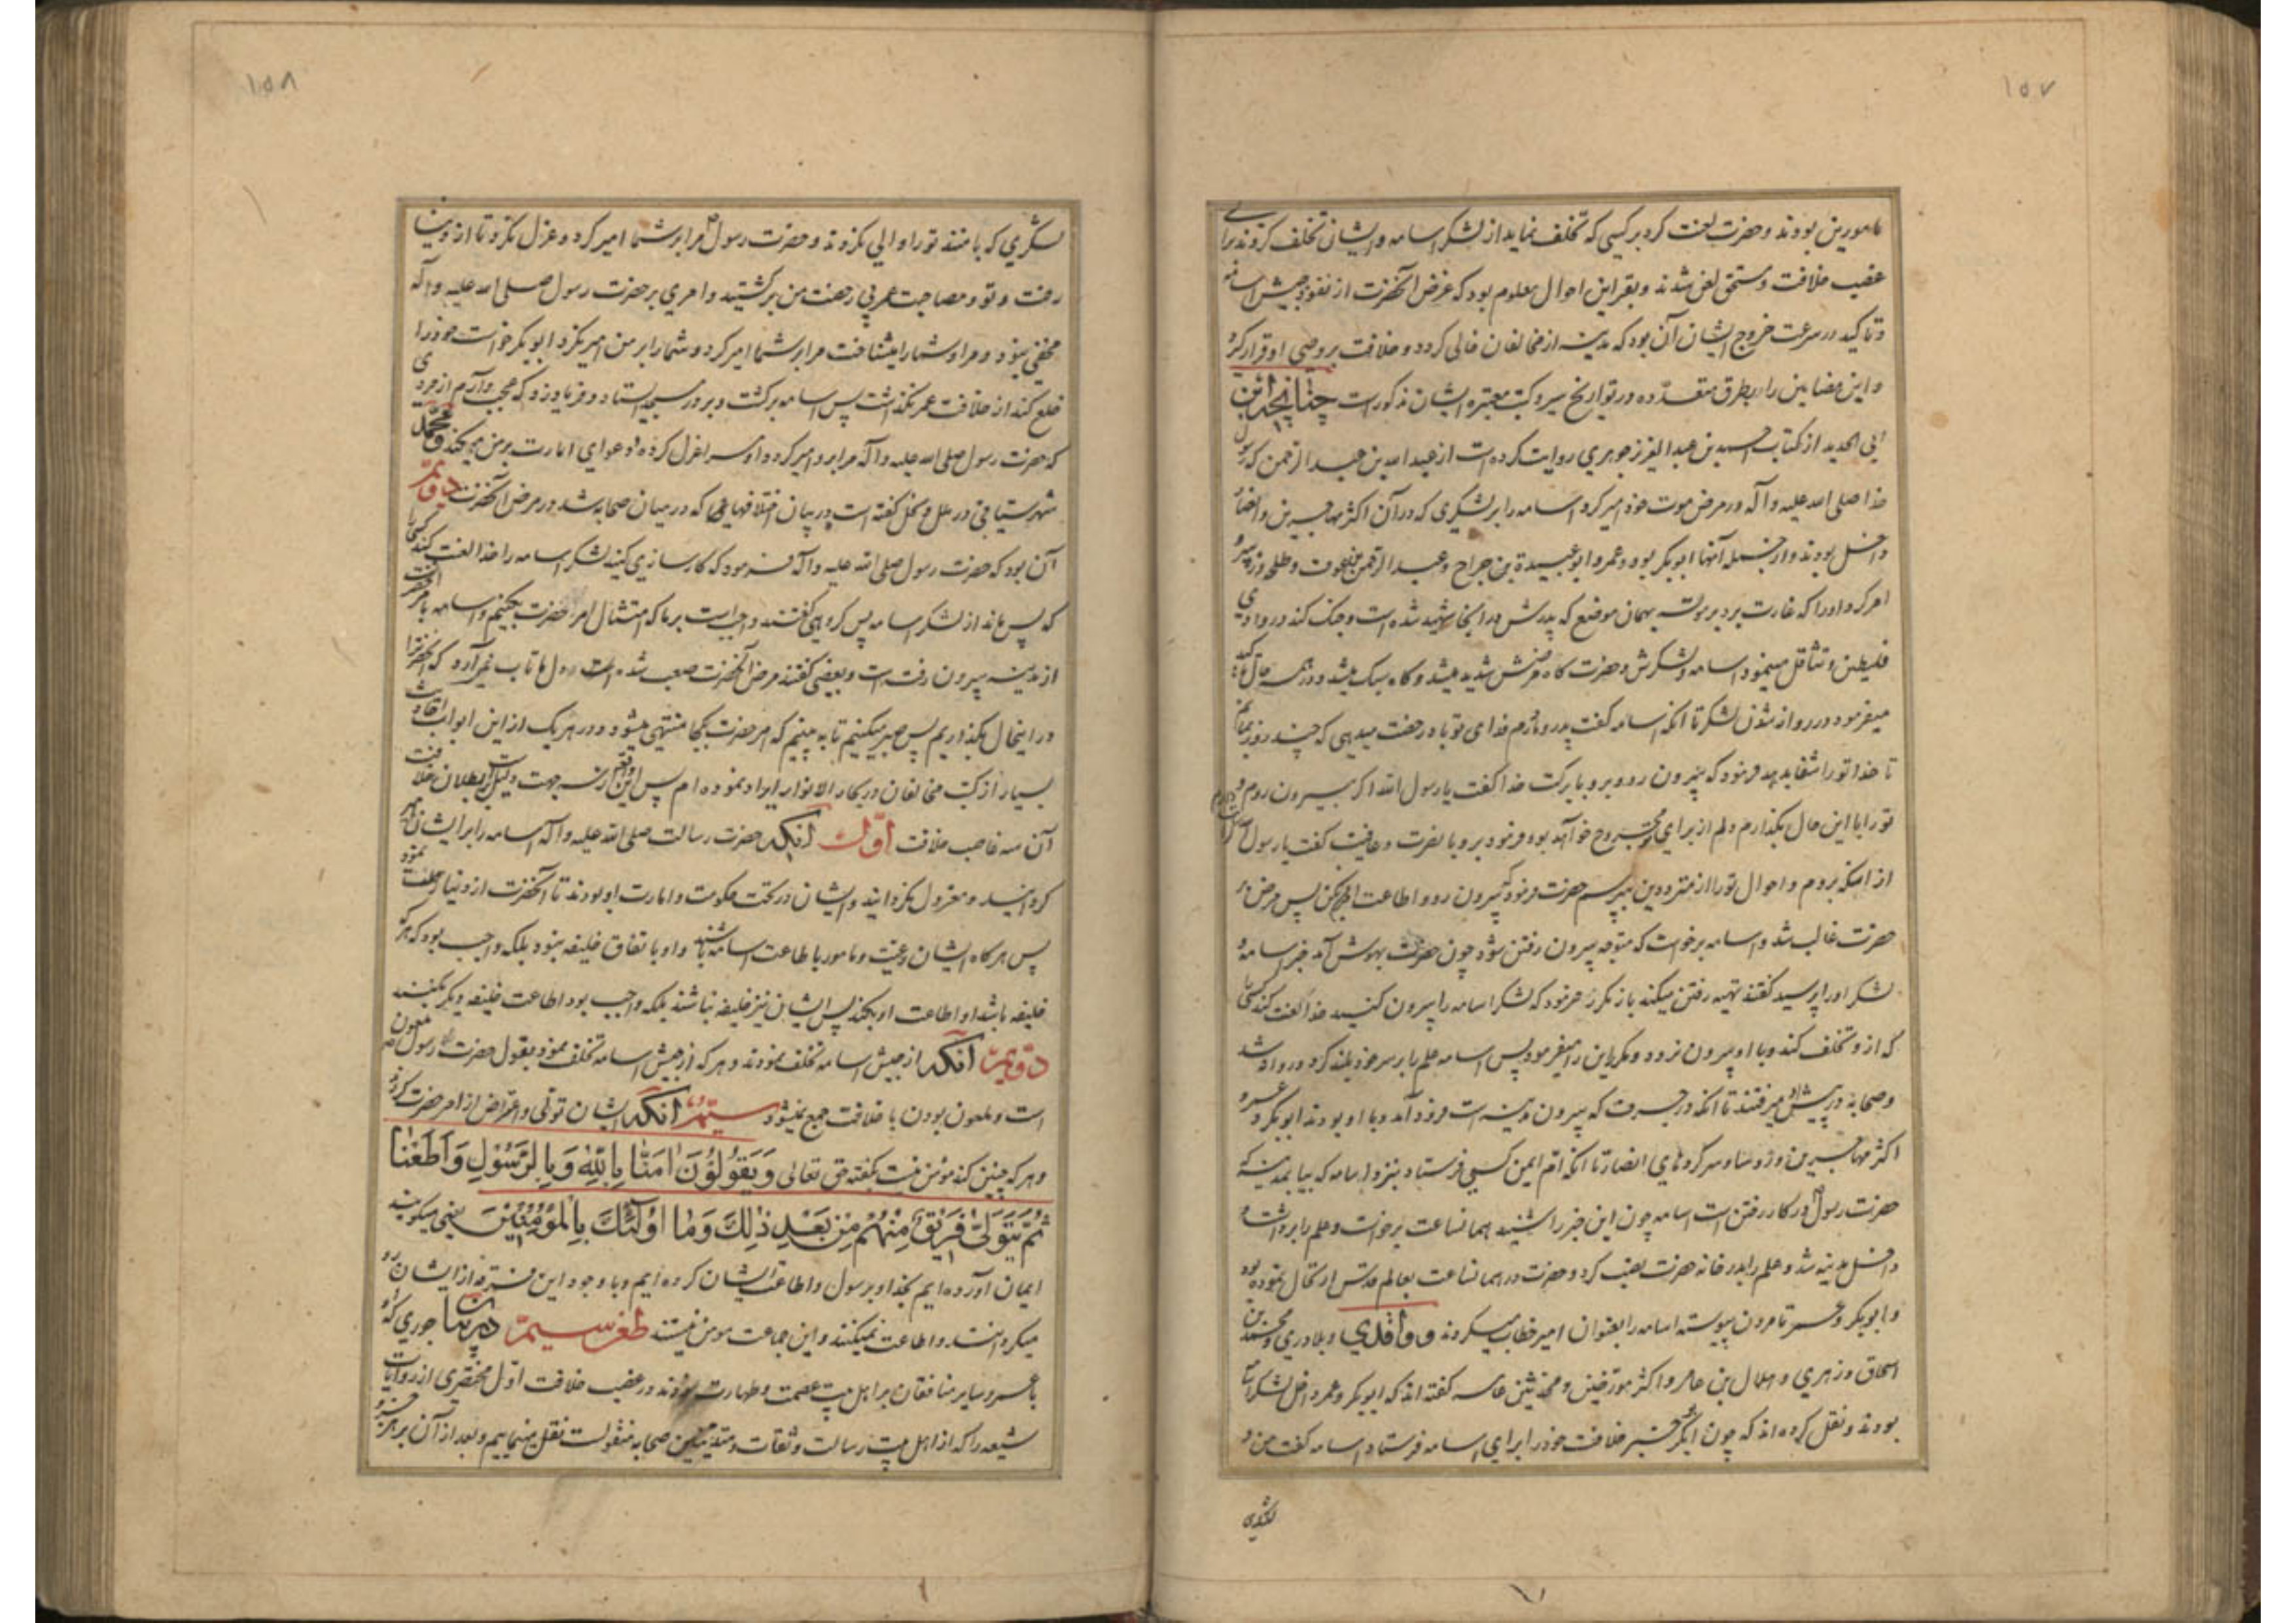 ۱۵۷
مامورین بودند و حضرت لعنت کرد بر کسی که تخلف نماید از لشکر اسامه و ایشان تخلف کردند برای
غصب خلافت و مستحق لعن شدند و بقراین احوال معلوم بود که غرض آنحضرت از نفوذ جیش اسامه
و تاکید در سرعت خروج ایشان آن بود که مدینه از مخالفان خالی گردد و خلافت بر وصی او قرار گیرد
و این مضامین را بطرق متعدّده در تواریخ و سیر و کتب معتبره ایشان مذکور است چنانچه ابن
ابی الحدید از کتاب احمد بن عبد العزیز جوهری روایت کرده است از عبد الله بن عبد الرحمن که رسول
خدا صلی الله علیه و آله در مرض موت خود امیر کرد اسامه را بر لشکری که در آن اکثر مهاجرین و انصار
داخل بودند و از جمله آنها ابوبکر بود و عمر و ابو عبیدة بن جراح و عبد الرحمن بن عوف و طلحه و زبیر و
امر کرد او را که غارت برد بر موته بهمان موضع که پدرش در انجا شهید شده است و جنک کند در وادی
فلسطین و تثاقل مینمود اسامه و لشکرش و حضرت کاه مرضش شدید میشد و کاه سبک میشد و در همه حال تاکید
میفرمود در روانه شدن لشکر تا انکه اسامه گفت پدر و مادرم فدای تو باد رخصت میدهی که چند روز بمانم
تا خدا تو را شفا بدهد فرمود که بیرون رو و برو با برکت خدا گفت یا رسول الله اکر بیرون روم و
تو را با این حال بگذارم دلم از برای تو مجروح خواهد بود فرمود برو با نصرت و عافیت گفت یا رسول الله
از انکه بروم و احوال تو را از مترددین بپرسم حضرت فرمود که بیرون رو و اطاعت کن پس مرض بر
حضرت غالب شد و اسامه برخواست که متوجه بیرون رفتن شود چون حضرت بهوش آمد خبر اسامه و
لشکر او را پرسید گفتند تهیه رفتن میکند باز مکرر فرمود که لشکر اسامه را بیرون کنید خدا لعنت کند کسی را
که از او تخلف کند و با او بیرون نرود و مکرر این را میفرمود پس اسامه علم را بر سر خود بلند کرد و روانه شد
و صحابه در پیش او میرفتند تا انکه در جرف که بیرون مدینه است فرود آمد و با او بودند ابوبکر و عمر و
اکثر مهاجرین و از رؤسا و سرکرده‌های انصار تا انکه ام ایمن کسی فرستاد بنزد اسامه که بیا بمدینه که
حضرت رسول در کار رفتن است اسامه چون این خبر را شنید همانساعت برخواست و علم را برداشت و
داخل مدینه شد و علم را بدر خانه حضرت نصب کرد و حضرت در همانساعت بعالم قدس ارتحال نموده بود
و ابوبکر و عمر تا مردن پیوسته اسامه را بعنوان امیر خطاب میکردند و واقدی و بلادری و محمد بن
اسحاق و زهری و هلال بن عامر و اکثر مورّخین و محدثین عامه گفته‌اند که ابوبکر و عمر داخل لشکر اسامه
بودند و نقل کرده‌اند که چون ابوبکر خبر خلافت خود را برای اسامه فرستاد اسامه گفت من و
لشکری
۱۵۸
لشکری که با منند تو را والی نکردند و حضرت رسول مرا بر شما امیر کرد و عزل نکرد تا از دنیا
رفت و تو و مصاحبت عمر بی رخصت من برکشتید و امری بر حضرت رسول صلی الله علیه و آله
مخفی نبود و مرا و شما را میشناخت مرا بر شما امیر کرد و شما را بر من امیر نکرد ابوبکر خواست خود را
خلع کند از خلافت عمر نگذاشت پس اسامه برکشت و بر در مسجد ایستاد و فریاد زد که عجب دارم از مردی
که حضرت رسول صلی الله علیه و آله مرا بر او امیر کرد و او مرا عزل کرده و دعوای امارت بر من میکند و محمّد
شهرستانی در ملل و نحل گفته است در بیان اختلافهایی که در میان صحابه شد در مرض آنحضرت دوّیم
آن بود که حضرت رسول صلی الله علیه و آله فرمود که کارسازی کنید لشکر اسامه را خدا لعنت کند کسی را
که پس ماند از لشکر اسامه پس کروهی گفتند واجبست بر ما که امتثال امر حضرت بکنیم و اسامه با امر حضرت
از مدینه بیرون رفته است و بعضی گفتند مرض آنحضرت صعب شده است و دل ما تاب نمی‌آرد که آنحضرترا
در اینحال بگذاریم پس صبر میکنیم تا به بینیم که امر حضرت بکجا منتهی میشود و در هر یک از این ابواب احادیث
بسیار از کتب مخالفان در بحار الانوار ایراد نموده‌ام پس این واقعه از سه جهت دلیل است بر بطلان خلافت
آن سه غاصب خلافت اوّل انکه حضرت رسالت صلی الله علیه و آله اسامه را بر ایشان امیر
کردانید و معزول نکردانید و ایشان در تحت حکومت و امارت او بودند تا آنحضرت از دنیا رحلت نمود
پس هر کاه ایشان رعیّت و مامور باطاعت اسامه باشند و او باتفاق خلیفه نبود بلکه واجب بود که هر که
خلیفه باشد او اطاعت او بکند پس ایشان نیز خلیفه نباشند بلکه واجب بود اطاعت خلیفه دیگر بکنند
دوّیم انکه از جیش اسامه تخلف نمودند و هر که از جیش اسامه تخلف نمود بقول حضرت رسول ملعون
است و ملعون بودن با خلافت جمع نمیشود سیّم انکه ایشان تولّی و اعراض از امر حضرت کردند
و هر که چنین کند مؤمن نیست بکفته حق تعالی وَيَقُولُونَ امَنَّا بِاللّٰهِ وَبِالرَّسُولِ وَاَطَعْنَا
ثُمَّ يَتَوَلّٰى فَرِيقٌ مِنْهُمْ مِنْ بَعْدِ ذٰلِكَ وَمَا اُولٰئِكَ بِالْمُؤْمِنِينَ یعنی میکویند
ایمان آورده‌ایم بخدا و برسول و اطاعت ایشان کرده‌ایم و با وجود این فرقه از ایشان رو
میکردانند و اطاعت نمیکنند و این جماعت مومن نیستند طعن سیّم در بیان جوری که
با عمر و سایر منافقان بر اهل بیت عصمت و طهارت نمودند در غصب خلافت اوّل مختصری از روایات
شیعه را که از اهل بیت رسالت و ثقات و متدیّنین صحابه منقولست نقل مینماییم و بعد از آن بر هر جزو